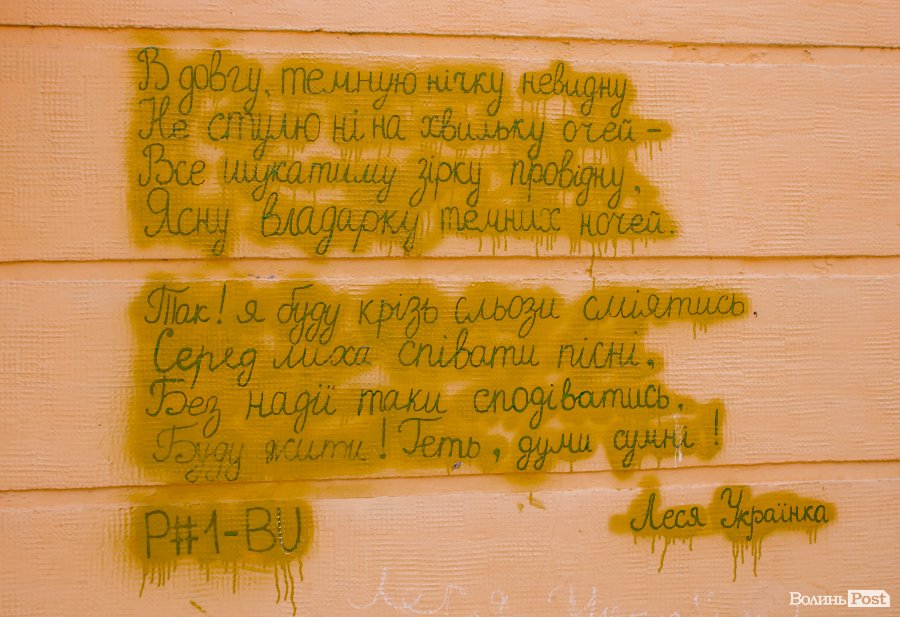 В довгу, темную нічку невидну
Не стулю ні на хвильку очей –
Все шукатиму зірку провідну,
Ясну владарку темних ночей.
Так! я буду крізь сльози сміятись,
Серед лиха співати пісні,
Без надії таки сподіватись,
Буду жити! Геть, думи сумні!
Леся Українка
P#1-BU
ВолиньPost